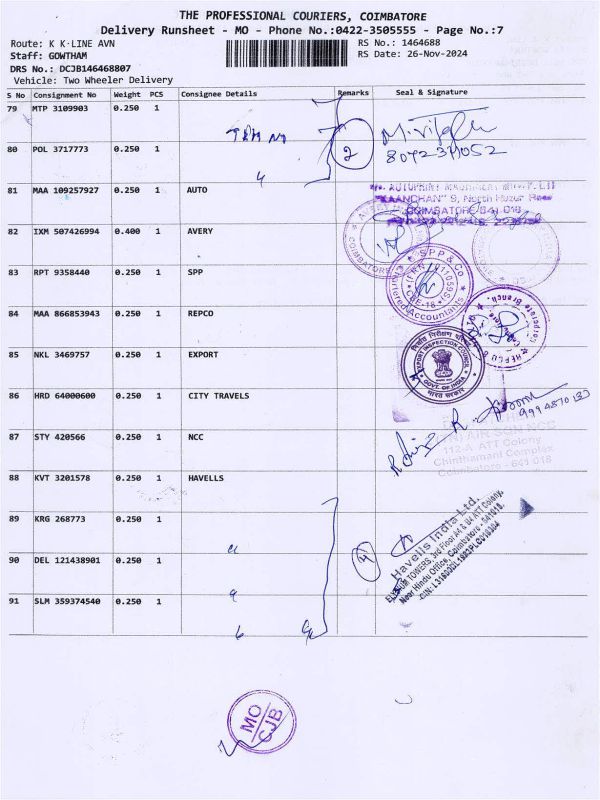 THE PROFESSIONAL COURIERS, COIMBATORE
Delivery Runsheet - MO - Phone No.:0422-3505555 - Page No.:7
Route: K K-LINE AVN
RS No.: 1464688
Staff: GOWTHAM
RS Date: 26-Nov-2024
DRS No.: DCJB146468807
Vehicle: Two Wheeler Delivery
S No Consignment No Weight PCS Consignee Details Remarks Seal & Signature
79 MTP 3109903 0.250 1
80 POL 3717773 0.250 1
2
81 MAA 109257927 0.250 1 AUTO
"KAANCHAN" 9, North Huzur Road
COIMBATORE 641 018
82 IXM 507426994 0.400 1 AVERY
COIMBATORE
83 RPT 9358440 0.250 1 SPP
SPP & Co
Chartered Accountants
CBE-18
84 MAA 866853943 0.250 1 REPCO
85 NKL 3469757 0.250 1 EXPORT
EXPORT INSPECTION COUNCIL
GOVT. OF INDIA
भारत सरकार
86 HRD 64000600 0.250 1 CITY TRAVELS
87 STY 420566 0.250 1 NCC
NCC
112-A ATT Colony
Chinthamani Complex
Coimbatore - 641 018
88 KVT 3201578 0.250 1 HAVELLS
89 KRG 268773 0.250 1
4
Havells India Ltd.
90 DEL 121438901 0.250 1
91 SLM 359374540 0.250 1
MO
CJB